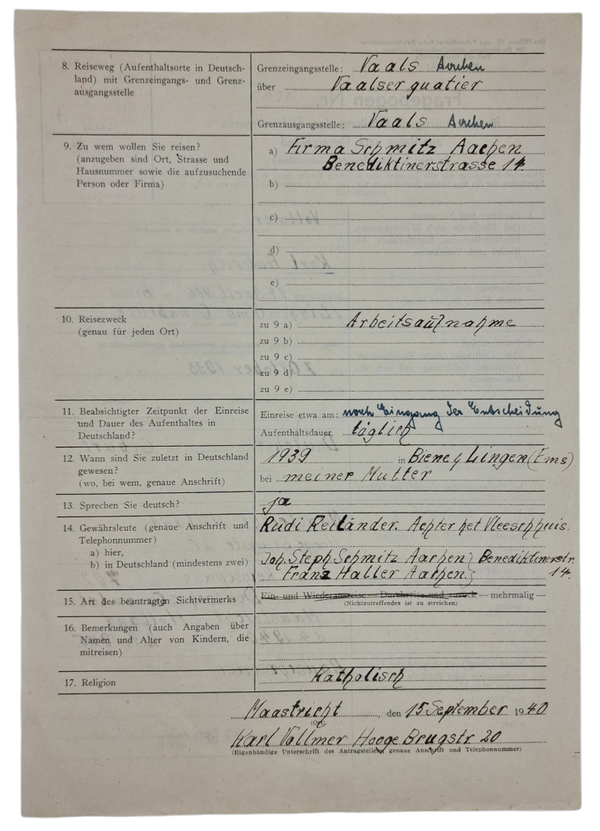 8. Reiseweg (Aufenthaltsorte in Deutsch-
land) mit Grenzeingangs- und Grenz-
ausgangsstelle
Grenzeingangsstelle: Vaals Aachen
über Vaalserquatier
Grenzausgangsstelle: Vaals Aachen
9. Zu wem wollen Sie reisen?
(anzugeben sind Ort, Strasse und
Hausnummer sowie die aufzusuchende
Person oder Firma)
a) Firma Schmitz Aachen
Benediktinerstrasse 14.
b)
c)
d)
e)
10. Reisezweck
(genau für jeden Ort)
zu 9 a) Arbeitsaufnahme
zu 9 b)
zu 9 c)
zu 9 d)
zu 9 e)
11. Beabsichtigter Zeitpunkt der Einreise
und Dauer des Aufenthaltes in
Deutschland?
Einreise etwa am: nach Eingang der Entscheidung
Aufenthaltsdauer täglich
12. Wann sind Sie zuletzt in Deutschland
gewesen?
(wo, bei wem, genaue Anschrift)
1939 in Biene b/ Lingen (Ems)
bei meiner Mutter
13. Sprechen Sie deutsch?
ja
14. Gewährsleute (genaue Anschrift und
Telephonnummer)
a) hier,
b) in Deutschland (mindestens zwei)
Rudi Reiländer. Achter het Vleeschhuis.
Joh. Steph Schmitz Aachen } Benediktinerstr.
Franz Haller Aachen. } 14.
15. Art des beantragten Sichtvermerks
Ein- und Wiederausreise — Durchreise und zurück — mehrmalig —
(Nichtzutreffendes ist zu streichen)
16. Bemerkungen (auch Angaben über
Namen und Alter von Kindern, die
mitreisen)
17. Religion
Katholisch
Maastricht, den 15 September 1940
(Ort)
Karl Vollmer Hooge Brugstr. 20
(Eigenhändige Unterschrift des Antragstellers, genaue Anschrift und Telephonnummer)